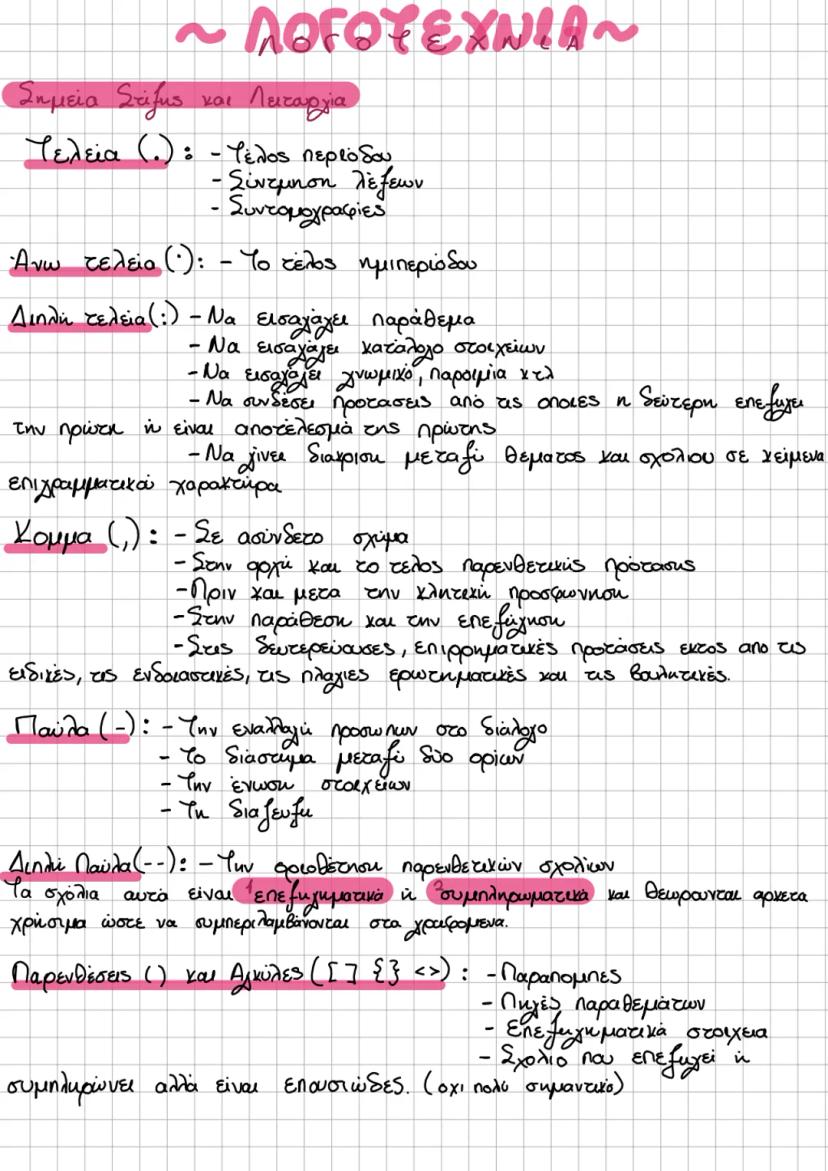 ~ ΛΟΓΟΤΕΧΝΙΑ ~
Σημεία Στίξης και Λειτουργία
Τελεία (.): - Τέλος περιόδου
- Σύντμηση λέξεων
- Συντομογραφίες
Άνω τελεία (·): - Το τέλος ημιπεριόδου
Διπλή τελεία (:) - Να εισαγάγει παράθεμα
- Να εισαγάγει κατάλογο στοιχείων
- Να εισαγάγει γνωμικό, παροιμία κτλ
- Να συνδέσει προτάσεις από τις οποιες η δεύτερη επεξηγει
την πρώτη ή είναι αποτέλεσμα της πρώτης
- Να γίνει διακριση μεταξύ θέματος και σχόλιου σε κείμενα
επιγραμματικού χαρακτήρα
Κομμα (,): - Σε ασύνδετο σχήμα
- Στην αρχή και το τέλος παρενθετικής πρότασης
- Πριν και μετα την κλητική προσφωνηση
- Στην παράθεση και την επεξήγηση
- Στις δευτερεύουσες, επιρρηματικές προτάσεις εκτος απο τις
ειδικές, τις ενδοιαστικές, τις πλαγιες ερωτηματικές και τις βουλητικές.
Παύλα (-): - Την εναλλαγή προσωπων στο διάλογο
- Το διάστημα μεταξύ δύο οριων
- Την ένωση στοιχείων
- Τη διαζευξη
Διπλή Παύλα (--): - Την οριοθέτηση παρενθετικών σχολίων
Τα σχόλια αυτά είναι ¹επεξηγηματικά ή ²συμπληρωματικά και θεωρουνται αρκετα
χρήσιμα ώστε να συμπεριλαμβάνονται στα γραφομενα.
Παρενθέσεις () και Αγκύλες ([ ] { } < >): - Παραπομπες
- Πηγές παραθεμάτων
- Επεξηγηματικά στοιχεια
- Σχολιο που επεξηγεί ή
συμπληρώνει αλλά είναι επουσιώδες. (οχι πολύ σημαντικό)